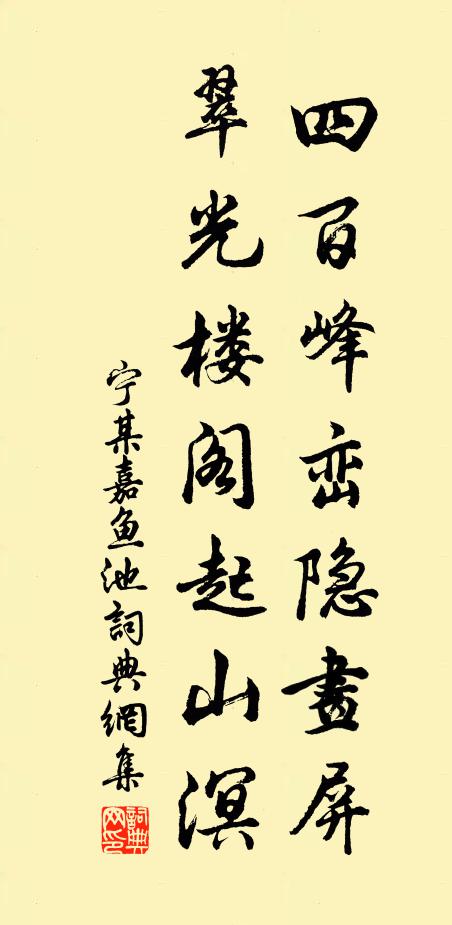 四百峰峦隐画屏
翠光楼阁起山溟
宁某嘉鱼池詞典網集
詞典网印